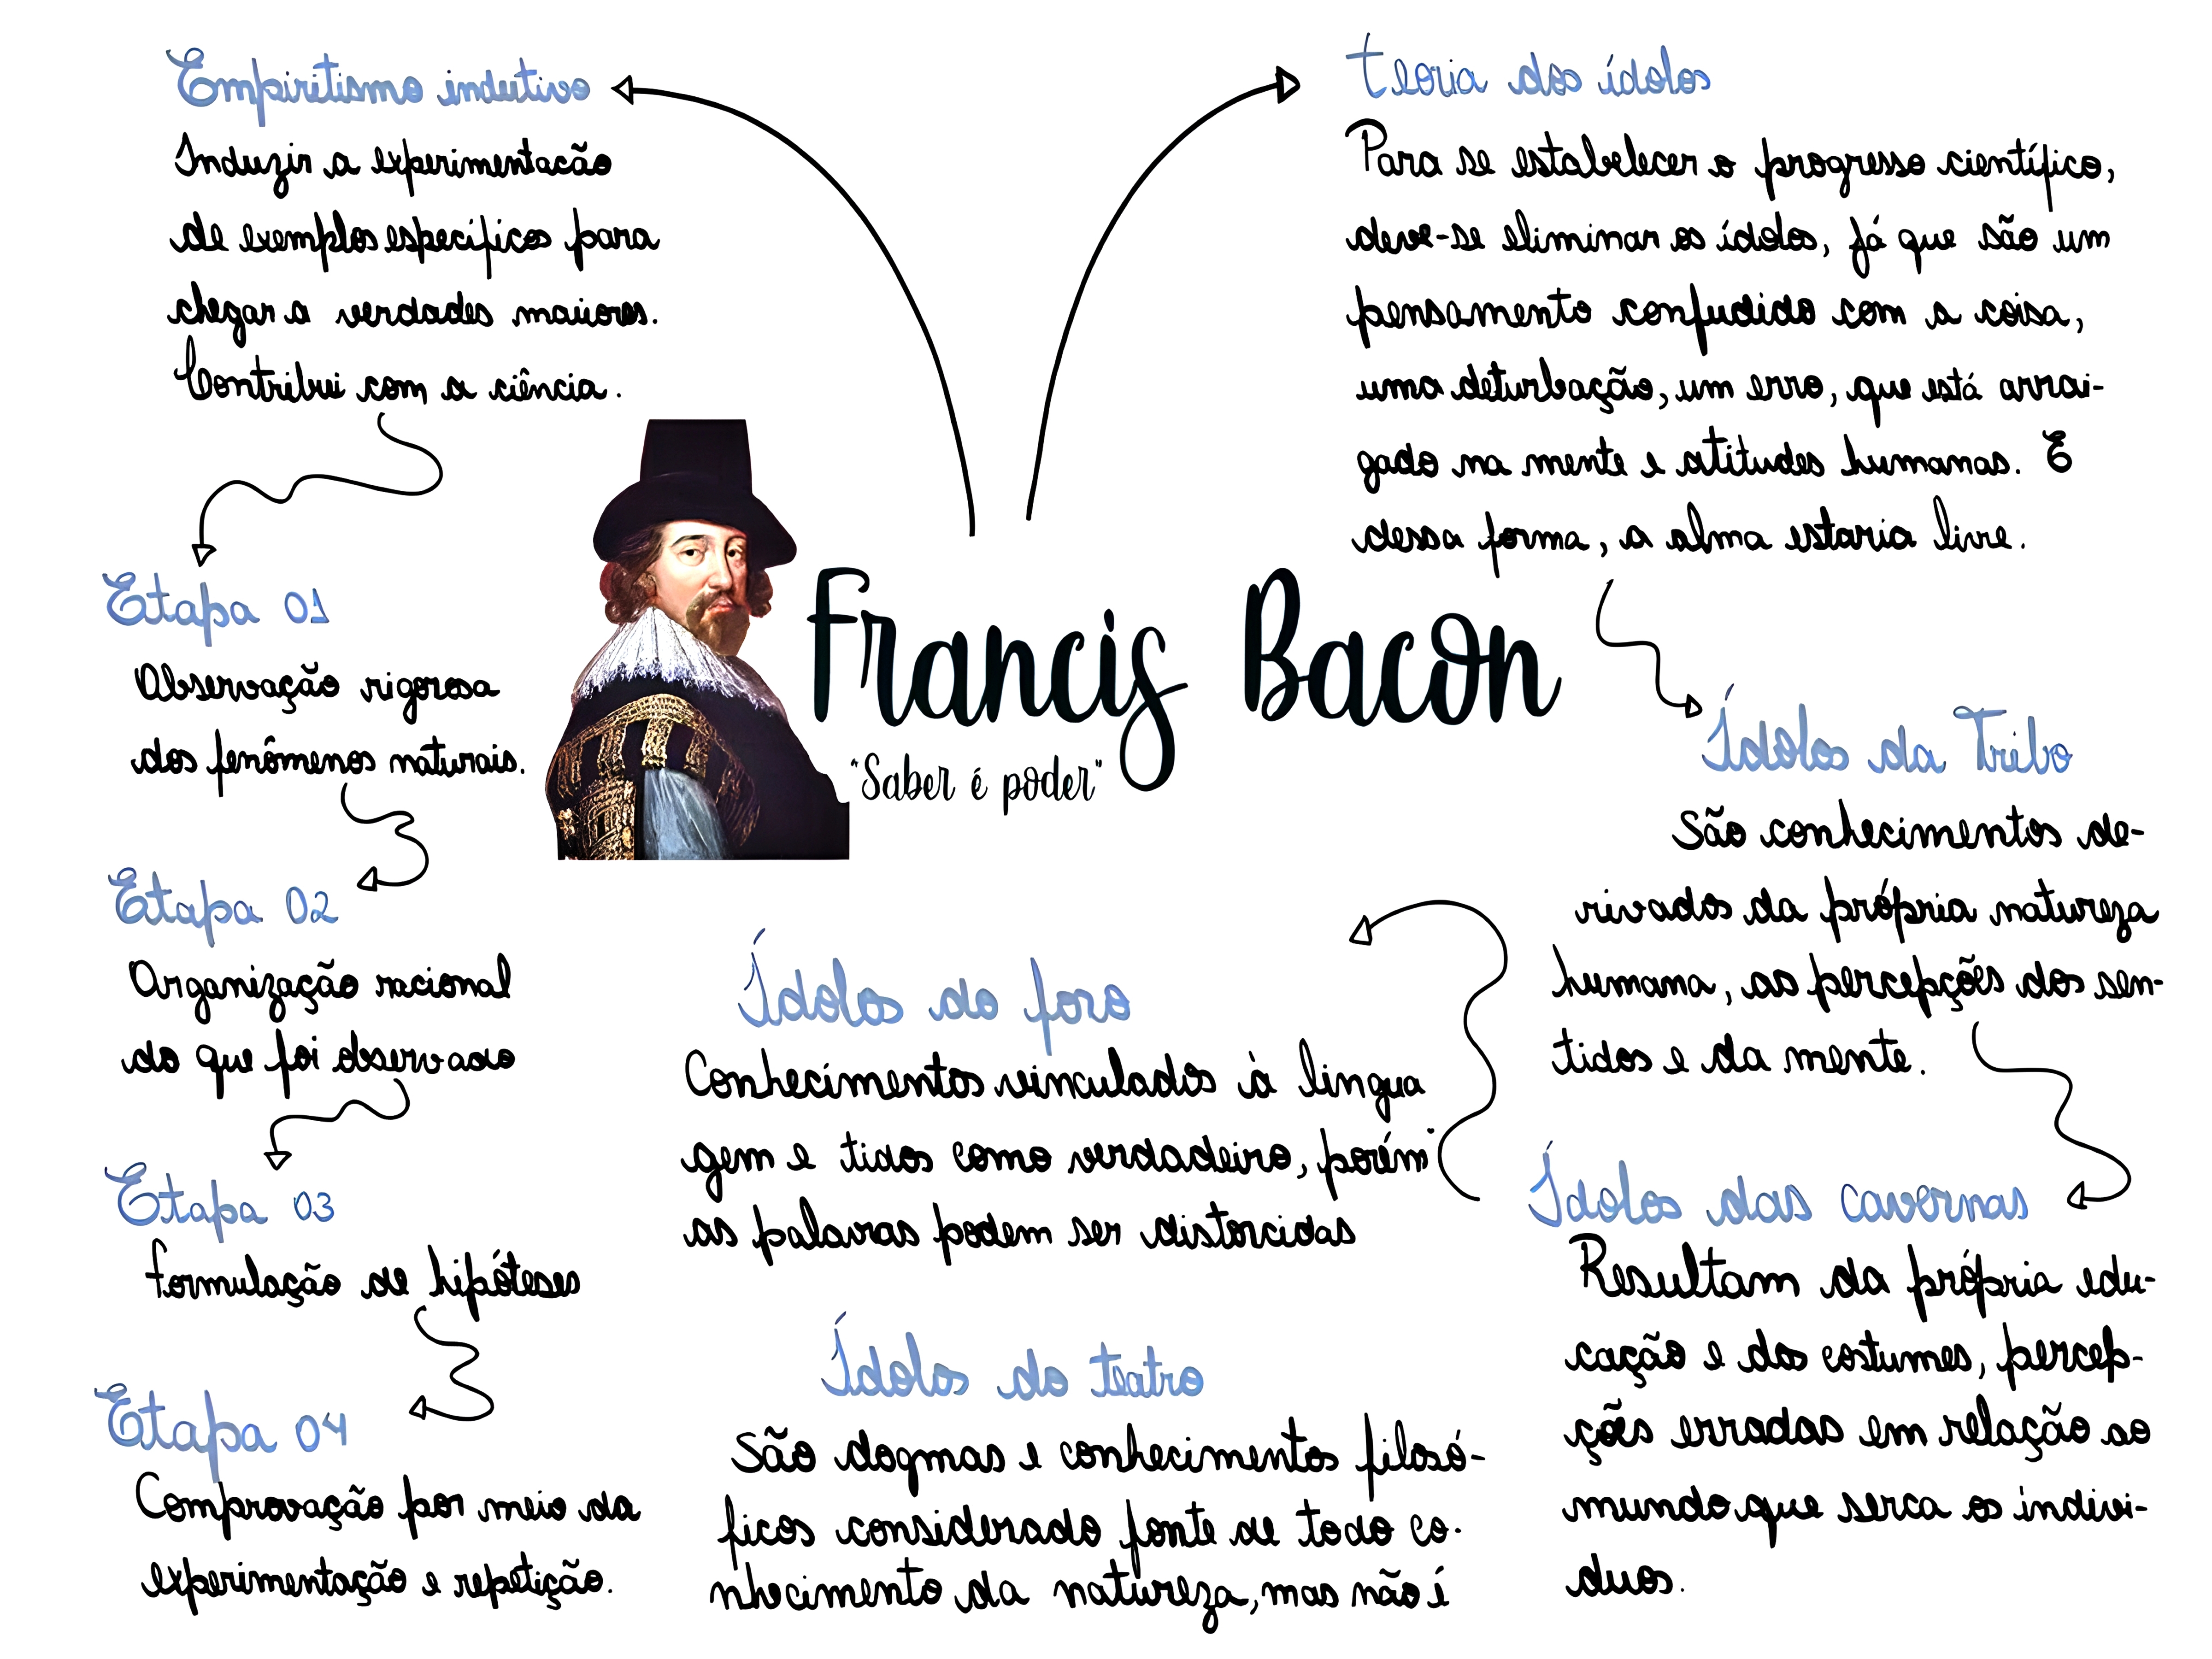 Empiritismo indutivo
Induzir a experimentacão
de exemplos específicos para
chegar a verdades maiores.
Contribui com a ciência.
Etapa 01
Observação rigorosa
dos fenômenos naturais.
Etapa 02
Organização racional
do que foi observado
Etapa 03
Formulação de hipóteses
Etapa 04
Comprovação por meio da
experimentação e repetição.
Francis Bacon
"Saber é poder"
Teoria dos ídolos
Para se estabelecer o progresso científico,
deve-se eliminar os ídolos, já que são um
pensamento confudido com a coisa,
uma deturbação, um erro, que está arrai-
gado na mente e atitudes humanas. E
dessa forma, a alma estaria livre.
Ídolos da Tribo
São conhecimentos de-
rivados da própria natureza
humana, as percepções dos sen-
tidos e da mente.
Ídolos das cavernas
Resultam da própria edu-
cação e dos costumes, percep-
ções erradas em relação ao
mundo que serca os indiví-
duos.
Ídolos do foro
Conhecimentos vinculados à lingua
gem e tidos como verdadeiro, porém
as palavras podem ser distorcidas
Ídolos do teatro
São dogmas e conhecimentos filosó-
ficos considerado fonte de todo co-
nhecimento da natureza, mas não é